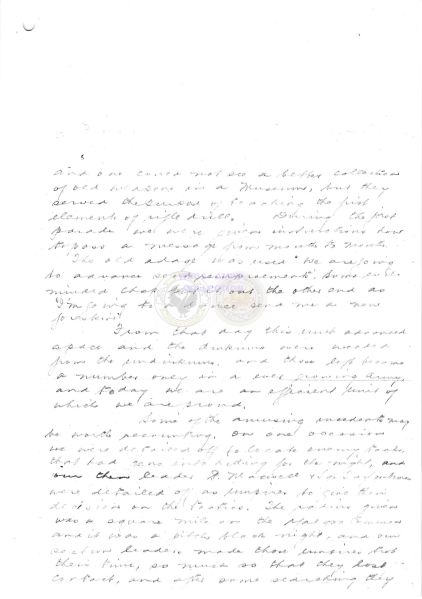 and one could not see a better collection
of old weapons in a Museum, but they
served the purpose of teaching the first
elements of rifle drill. During the first
parade we were given instructions how
to pass a message from mouth to mouth.
The old adage was used "We are going
to advance send reinforcements" Some evil
minded chap let it out the other end as
"I'm going to advance send me a new
foreskin"
From that day this unit advanced
apace and the drunkens were weeded
from the and those left became
a number only in a ever growing Army,
and today we are an efficient Unit of
which we are proud.
Some of the amusing incidents may
be worth recounting. On one occasion
we were detailed off to locate enemy tanks
that had gone into hiding for the night, and
our then leader Lt Maxwell
were detailed of as umpires to give their
decision on the tactics. The radius given
was a square mile on the Common
and it was a pitch black night, and our
section leaders made those umpires trot
their time, so much so that they lost
contact, and after some searching they